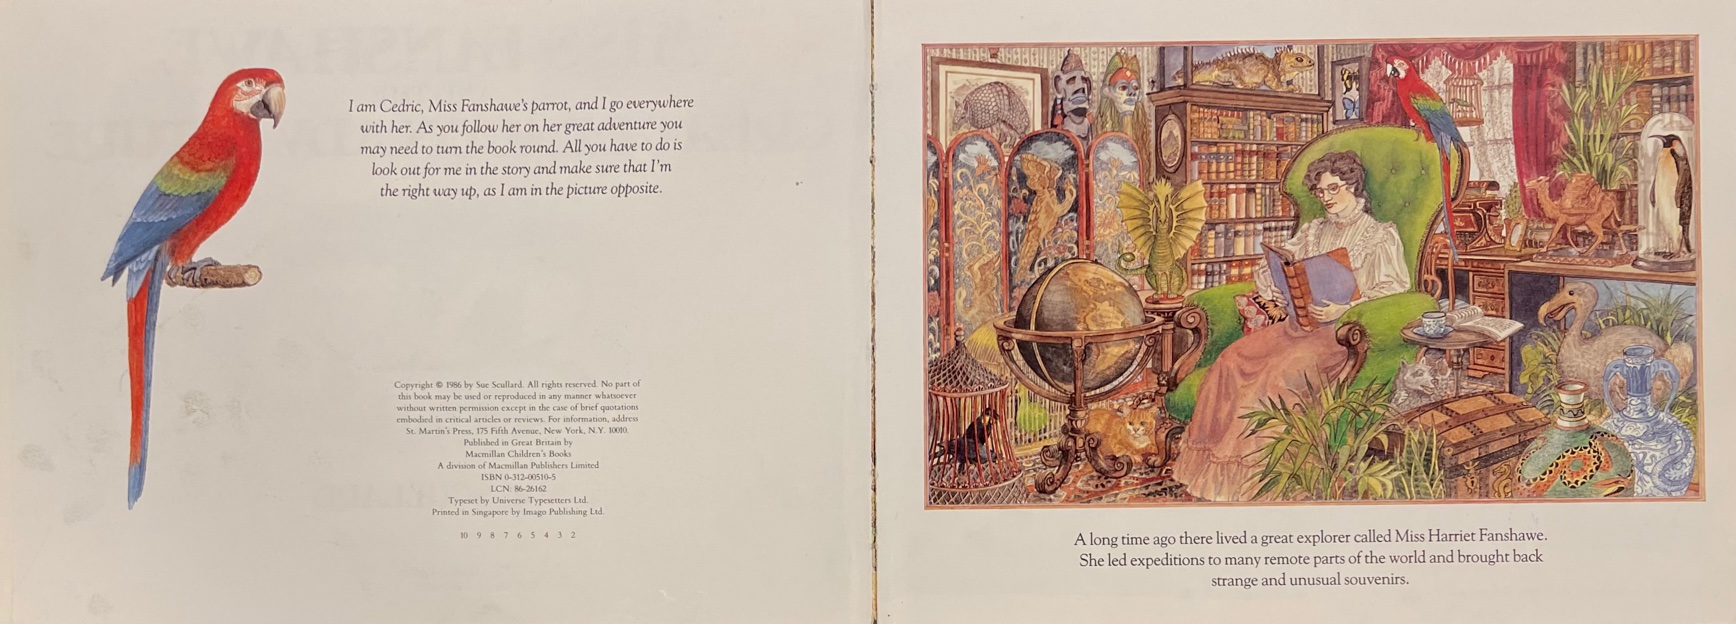 I am Cedric, Miss Fanshawe's parrot, and I go everywhere
with her. As you follow her on her great adventure you
may need to turn the book round. All you have to do is
look out for me in the story and make sure that I'm
the right way up, as I am in the picture opposite.
Copyright © 1986 by Sue Scullard. All rights reserved. No part of
this book may be used or reproduced in any manner whatsoever
without written permission except in the case of brief quotations
embodied in critical articles or reviews. For information, address
St. Martin's Press, 175 Fifth Avenue, New York, N.Y. 10010.
Published in Great Britain by
Macmillan Children's Books
A division of Macmillan Publishers Limited
ISBN 0-312-00510-5
LCN: 86-26162
Typeset by Universe Typesetters Ltd.
Printed in Singapore by Imago Publishing Ltd.
10 9 8 7 6 5 4 3 2
A long time ago there lived a great explorer called Miss Harriet Fanshawe.
She led expeditions to many remote parts of the world and brought back
strange and unusual souvenirs.